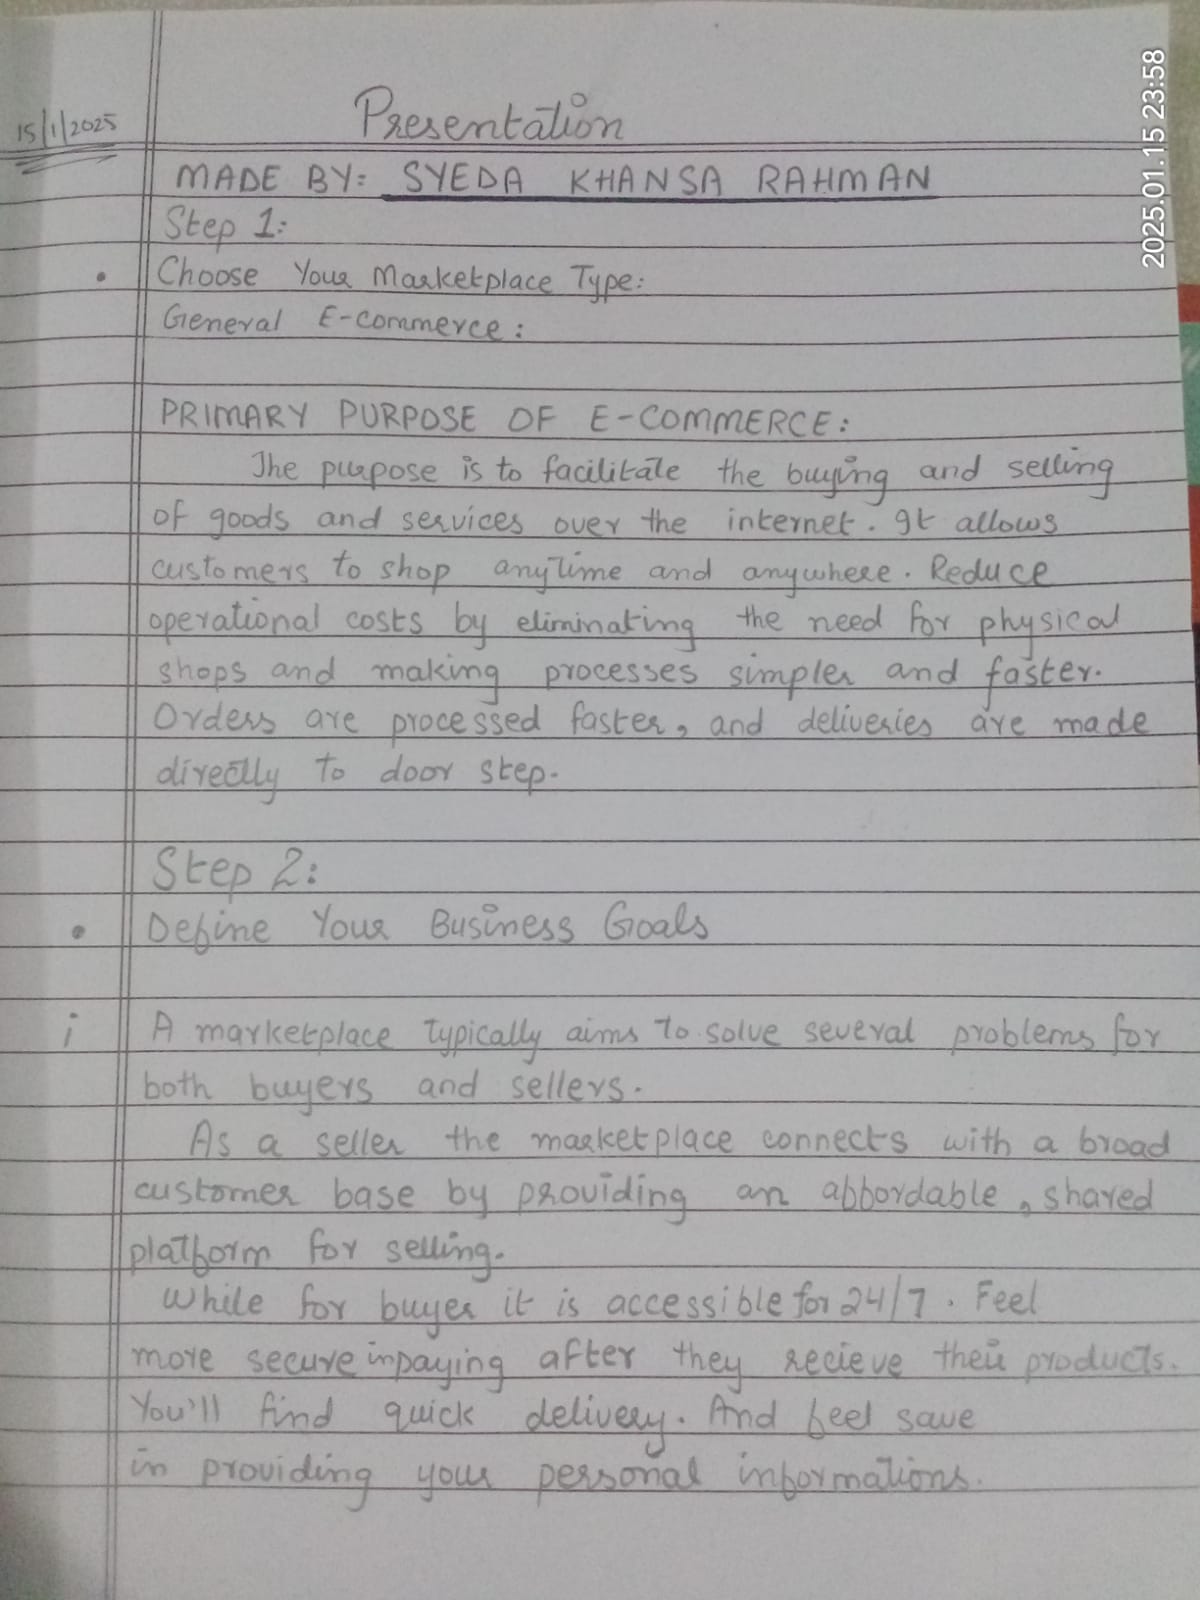 15/1/2025
Presentation
2025.01.15 23:58
MADE BY: SYEDA KHANSA RAHMAN
Step 1:
• Choose Your Marketplace Type:
General E-commerce:
PRIMARY PURPOSE OF E-COMMERCE:
The purpose is to facilitate the buying and selling
of goods and services over the internet. It allows
customers to shop anytime and anywhere. Reduce
operational costs by eliminating the need for physical
shops and making processes simpler and faster.
Orders are processed faster, and deliveries are made
directly to door step.
Step 2:
• Define Your Business Goals
i A marketplace typically aims to solve several problems for
both buyers and sellers.
As a seller the marketplace connects with a broad
customer base by providing an affordable, shared
platform for selling.
While for buyer it is accessible for 24/7. Feel
more secure in paying after they recieve their products.
You'll find quick delivery. And feel save
in providing your personal informations.